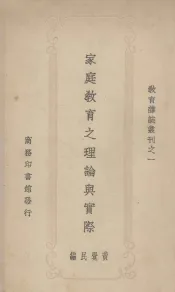 教育雜誌叢刊之一
家庭教育之理論與實際
黃覺民編
商務印書館發行